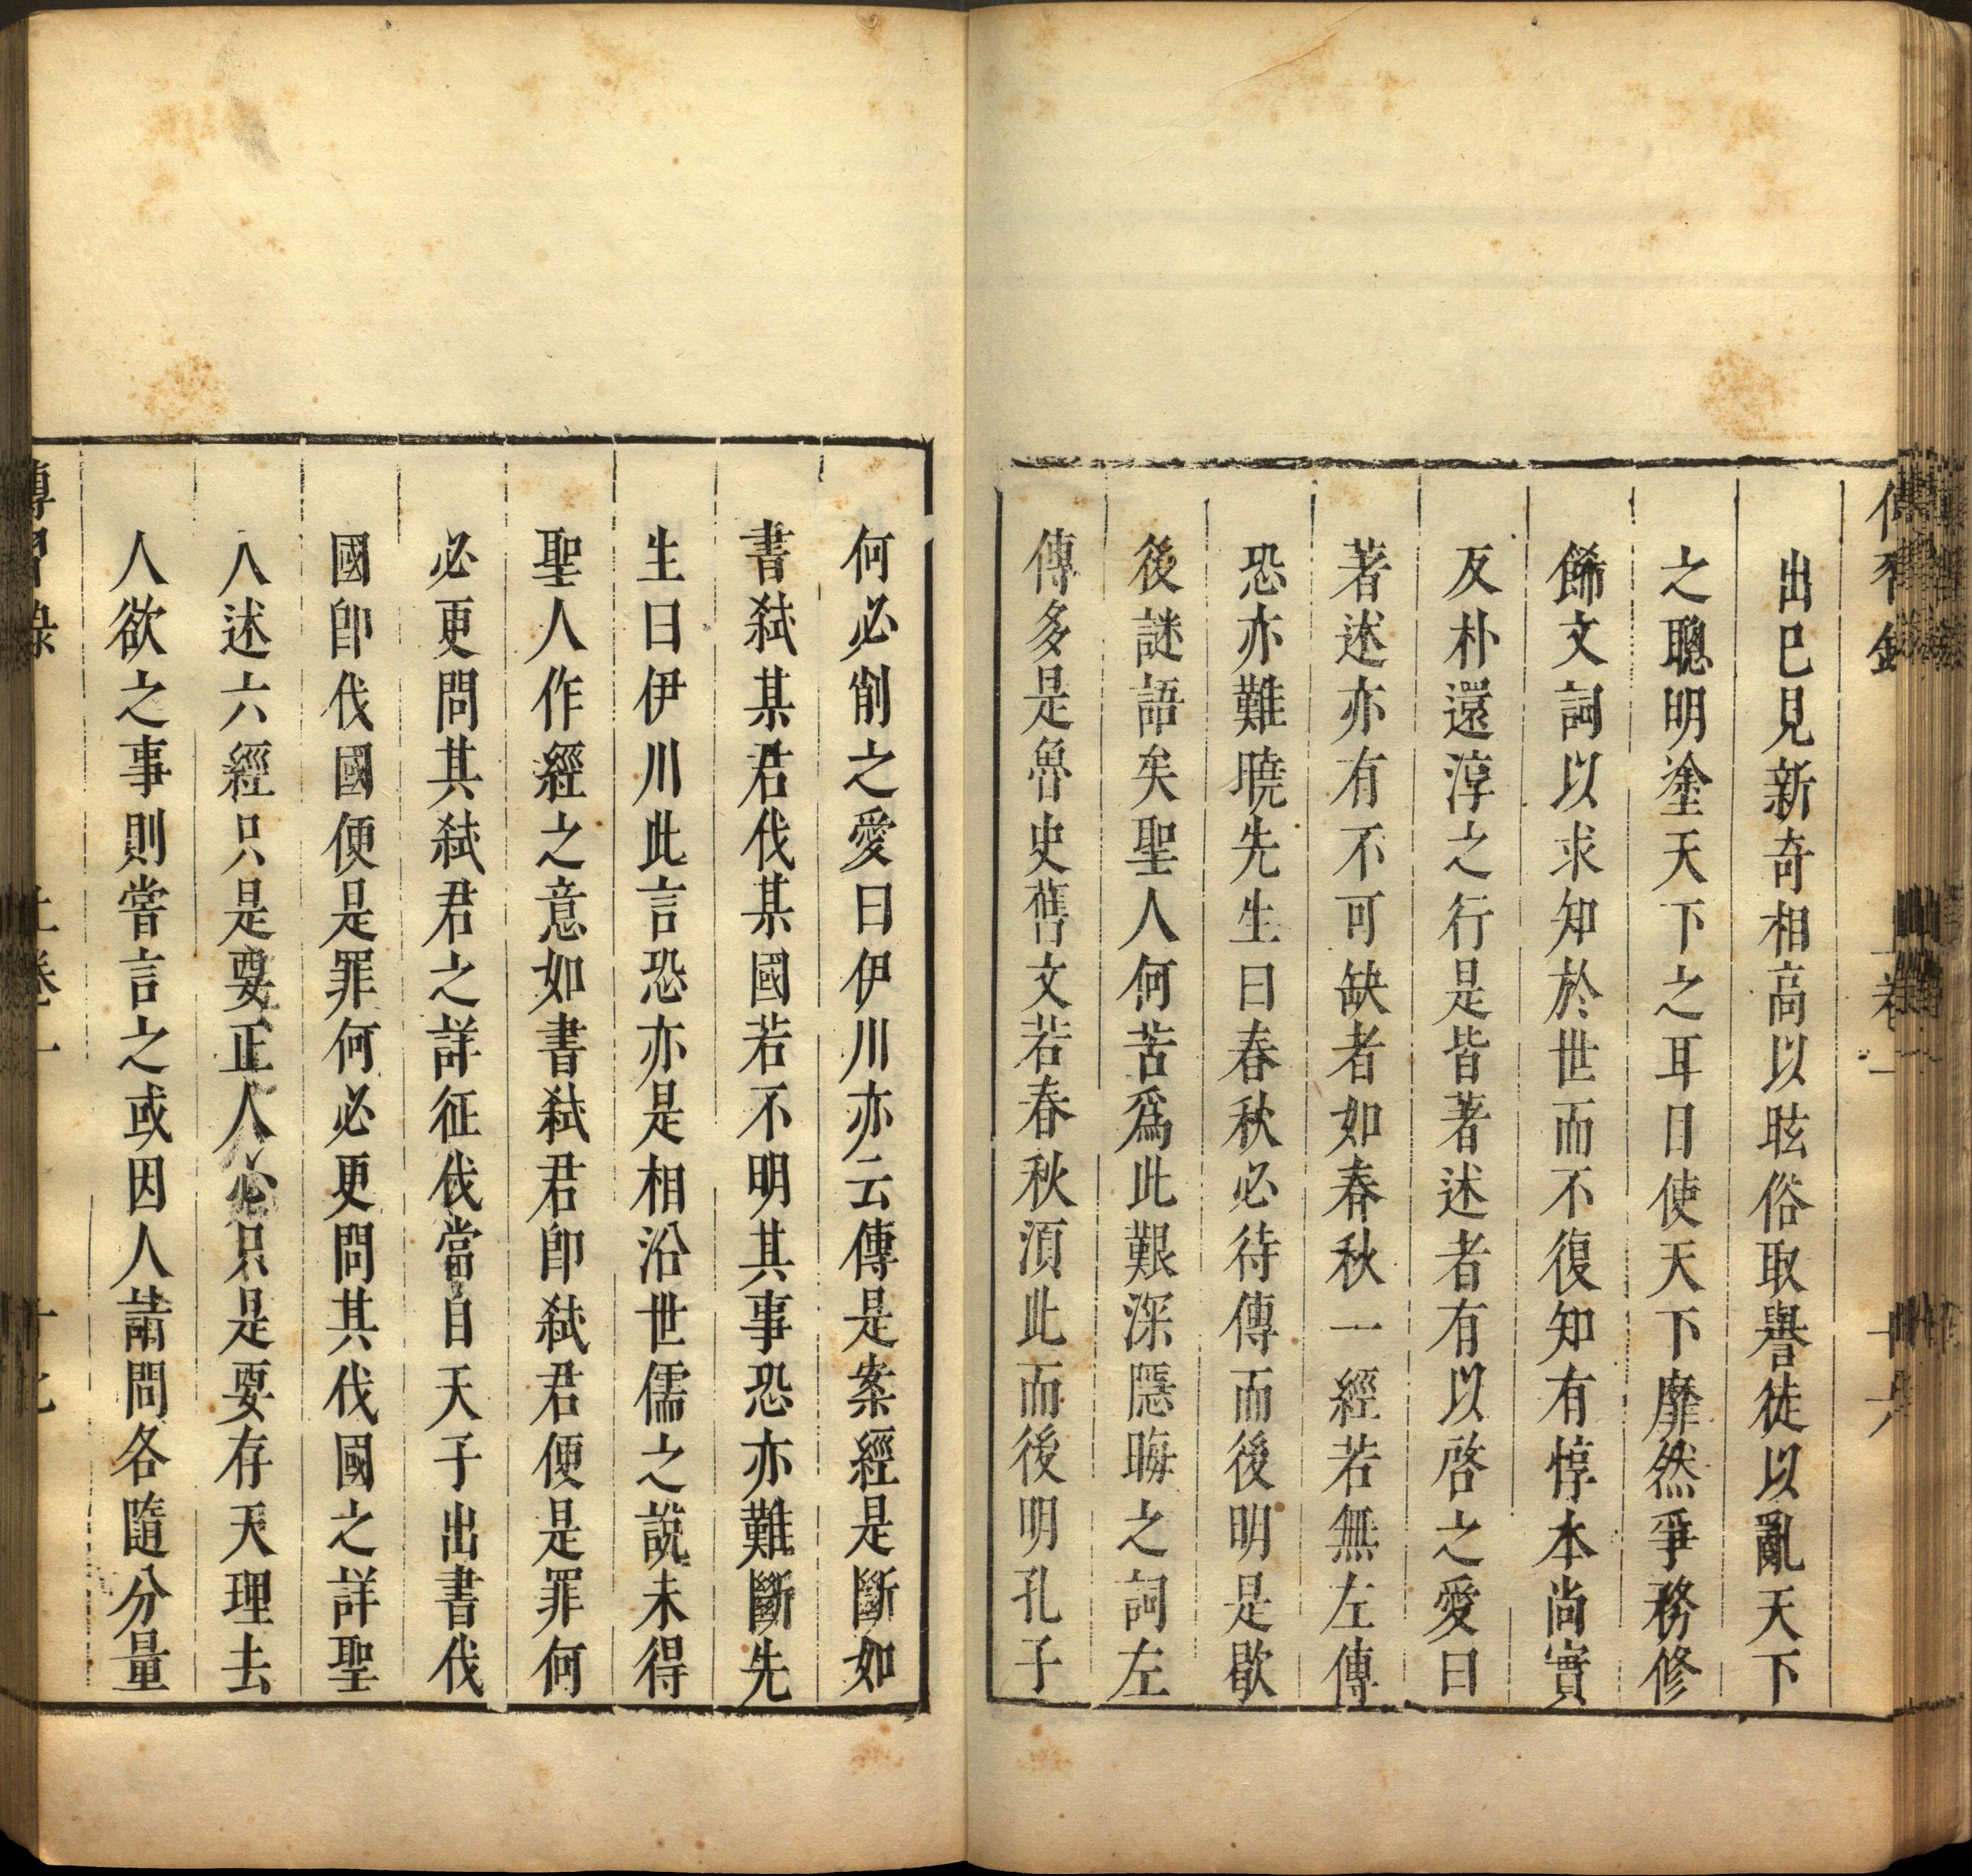 出已見新奇相高以眩俗取譽徒以亂天下
之聰明塗天下之耳目使天下靡然爭務修
餙文詞以求知於世而不復知有惇本尚實
反朴還淳之行是皆著述者有以啓之愛曰
著述亦有不可缺者如春秋一經若無左傳
恐亦難曉先生曰春秋必待傳而後明是歇
後謎語矣聖人何苦爲此艱深隱晦之詞左
傳多是魯史舊文若春秋湏此而後明孔子
何必削之愛曰伊川亦云傳是案經是斷如
書弑某君伐某國若不明其事恐亦難斷先
生曰伊川此言恐亦是相沿世儒之說未得
聖人作經之意如書弑君卽弑君便是罪何
必更問其弑君之詳征伐當自天子出書伐
國卽伐國便是罪何必更問其伐國之詳聖
人述六經只是要正人心只是要存天理去
人欲之事則嘗言之或因人請問各隨分量
傳習錄 上卷一